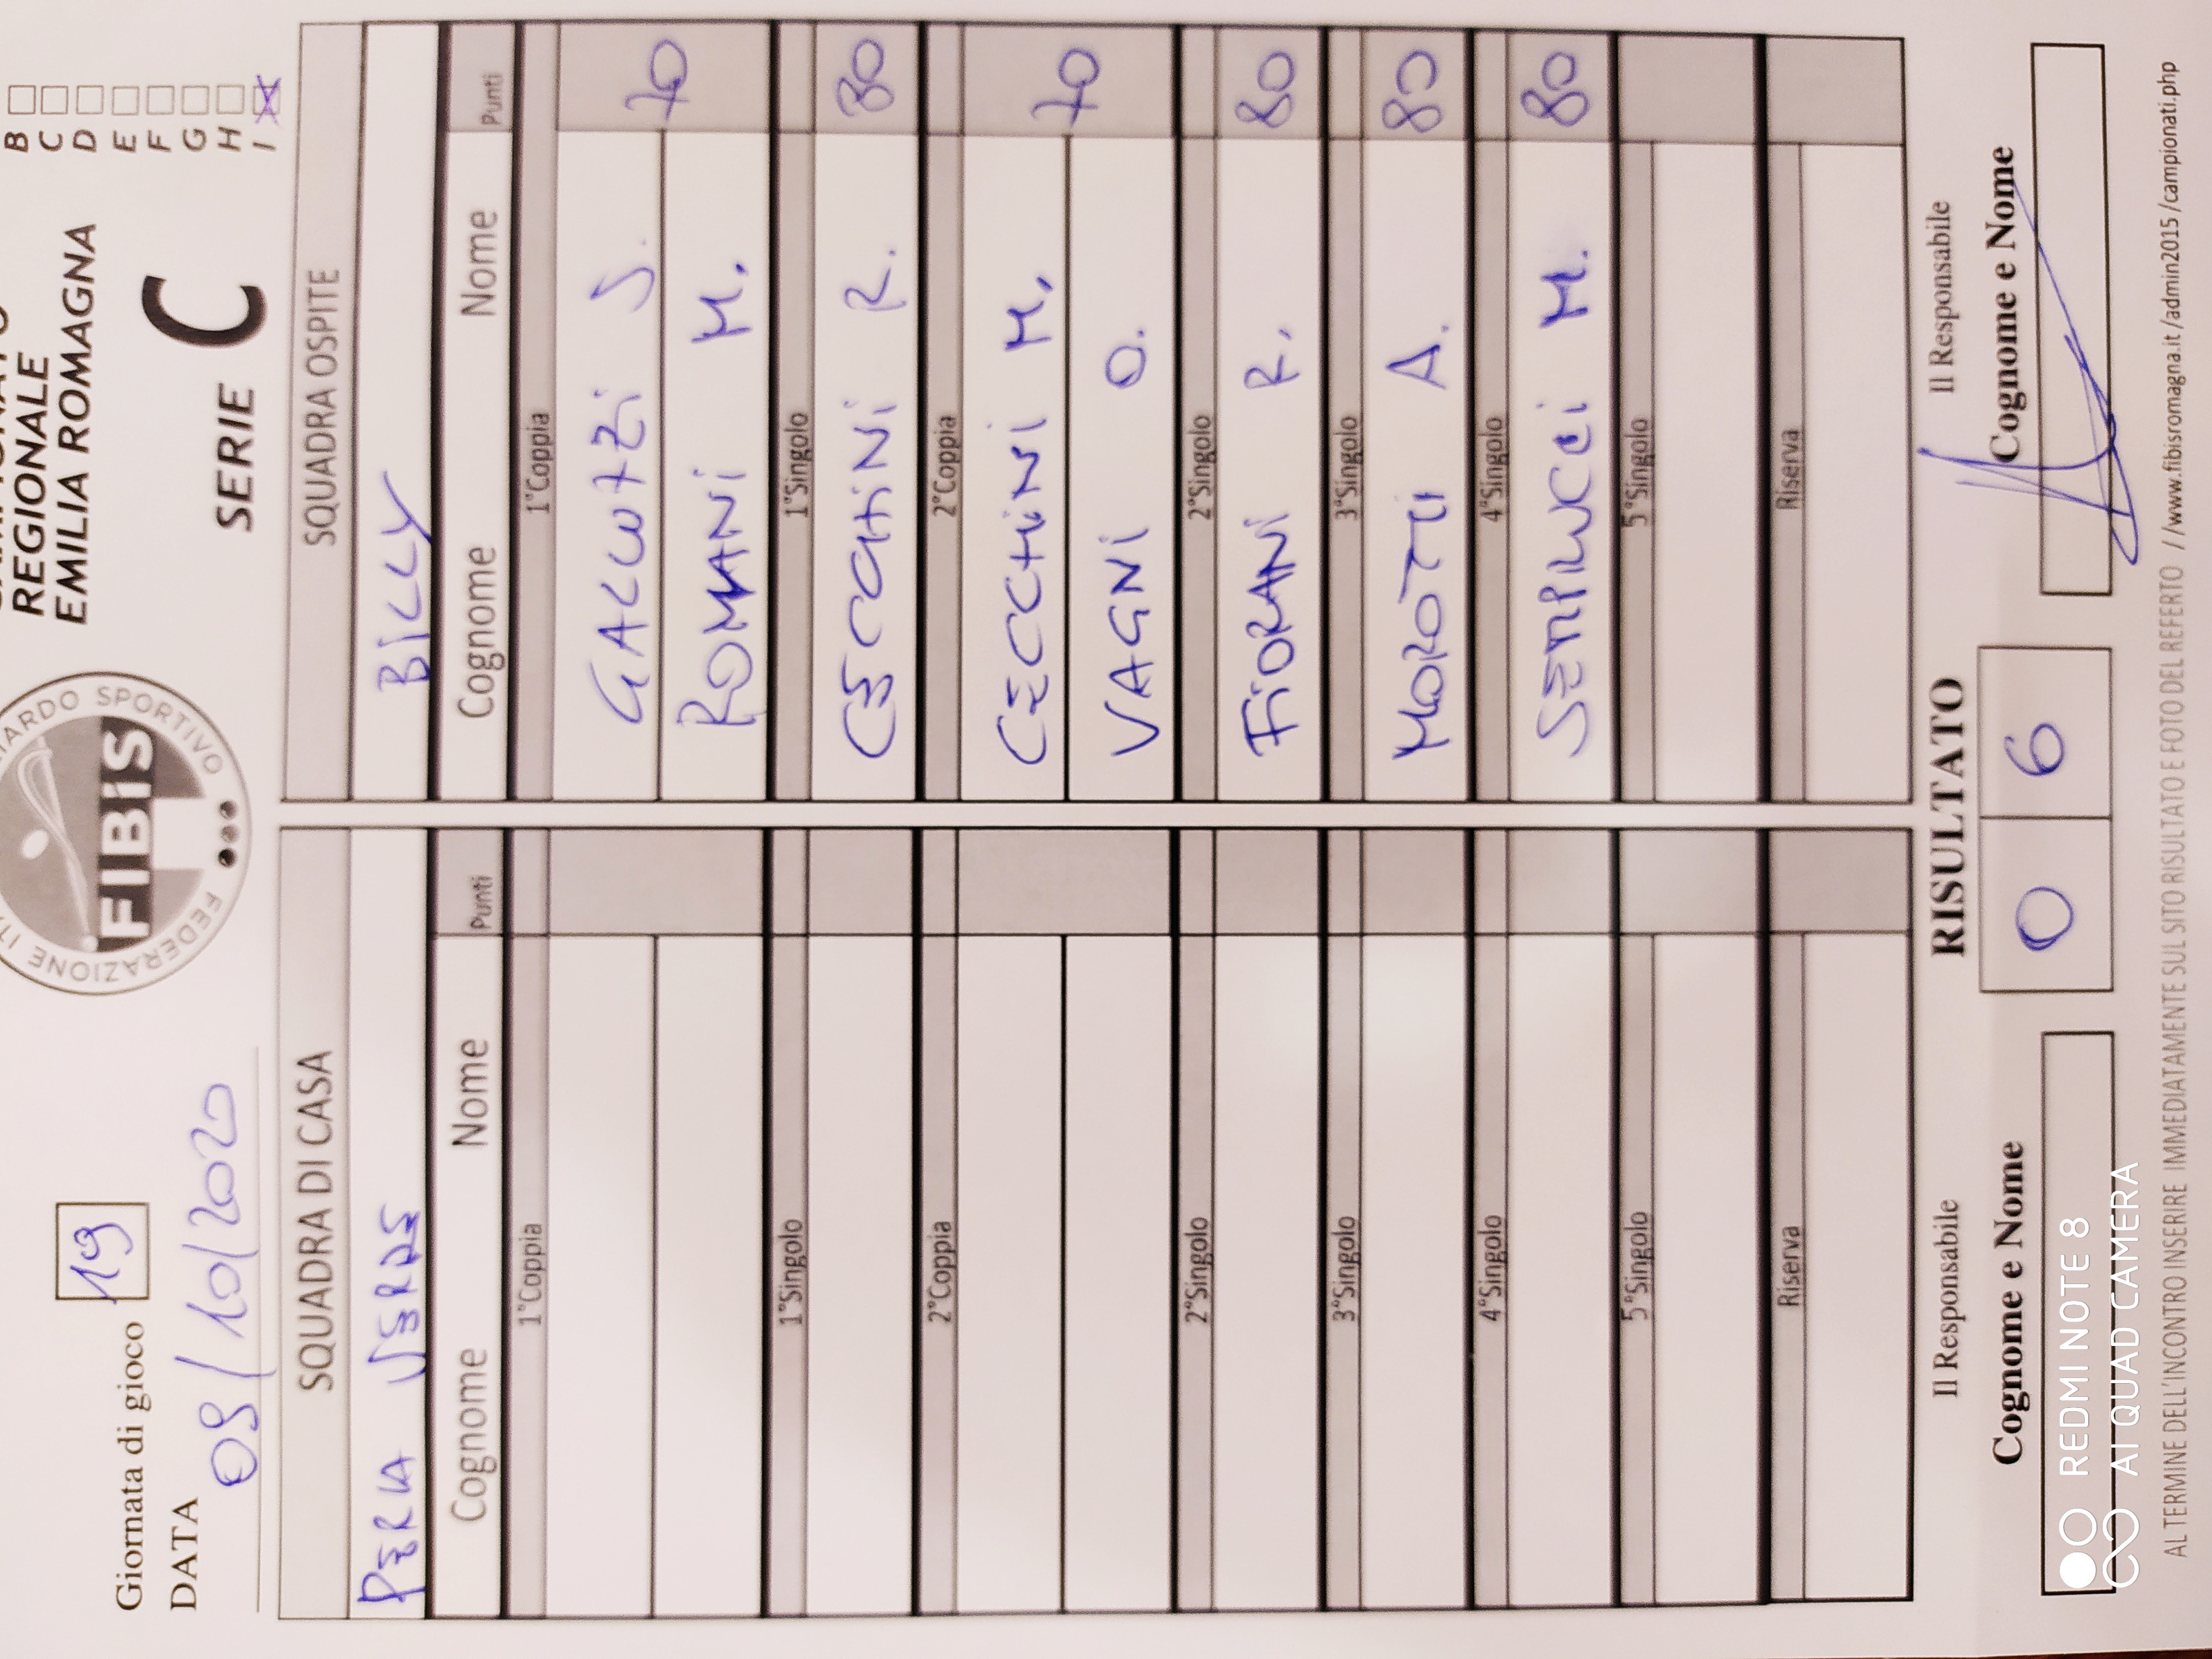 REGIONALE
EMILIA ROMAGNA
SERIE C
B
C
D
E
F
G
H
I X
FIBIS
Giornata di gioco 19
DATA 09/10/2020
SQUADRA DI CASA
PERLA VERDE
Cognome Nome Punti
1°Coppia
1°Singolo
2°Coppia
2°Singolo
3°Singolo
4°Singolo
5°Singolo
Riserva
SQUADRA OSPITE
BILLY
Cognome Nome Punti
1°Coppia
GALLUZZI S. 70
ROMANI M.
1°Singolo
CECCHINI R. 80
2°Coppia
CECCHINI M. 70
VAGNI O.
2°Singolo
FIORANI R. 80
3°Singolo
MOROTTI A. 80
4°Singolo
SEMPILUCCI M. 80
5°Singolo
Riserva
Il Responsabile
Cognome e Nome
RISULTATO
0 6
Il Responsabile
Cognome e Nome
AL TERMINE DELL'INCONTRO INSERIRE IMMEDIATAMENTE SUL SITO RISULTATO E FOTO DEL REFERTO //www.fibisromagna.it/admin2015/campionati.php
REDMI NOTE 8
AI QUAD CAMERA